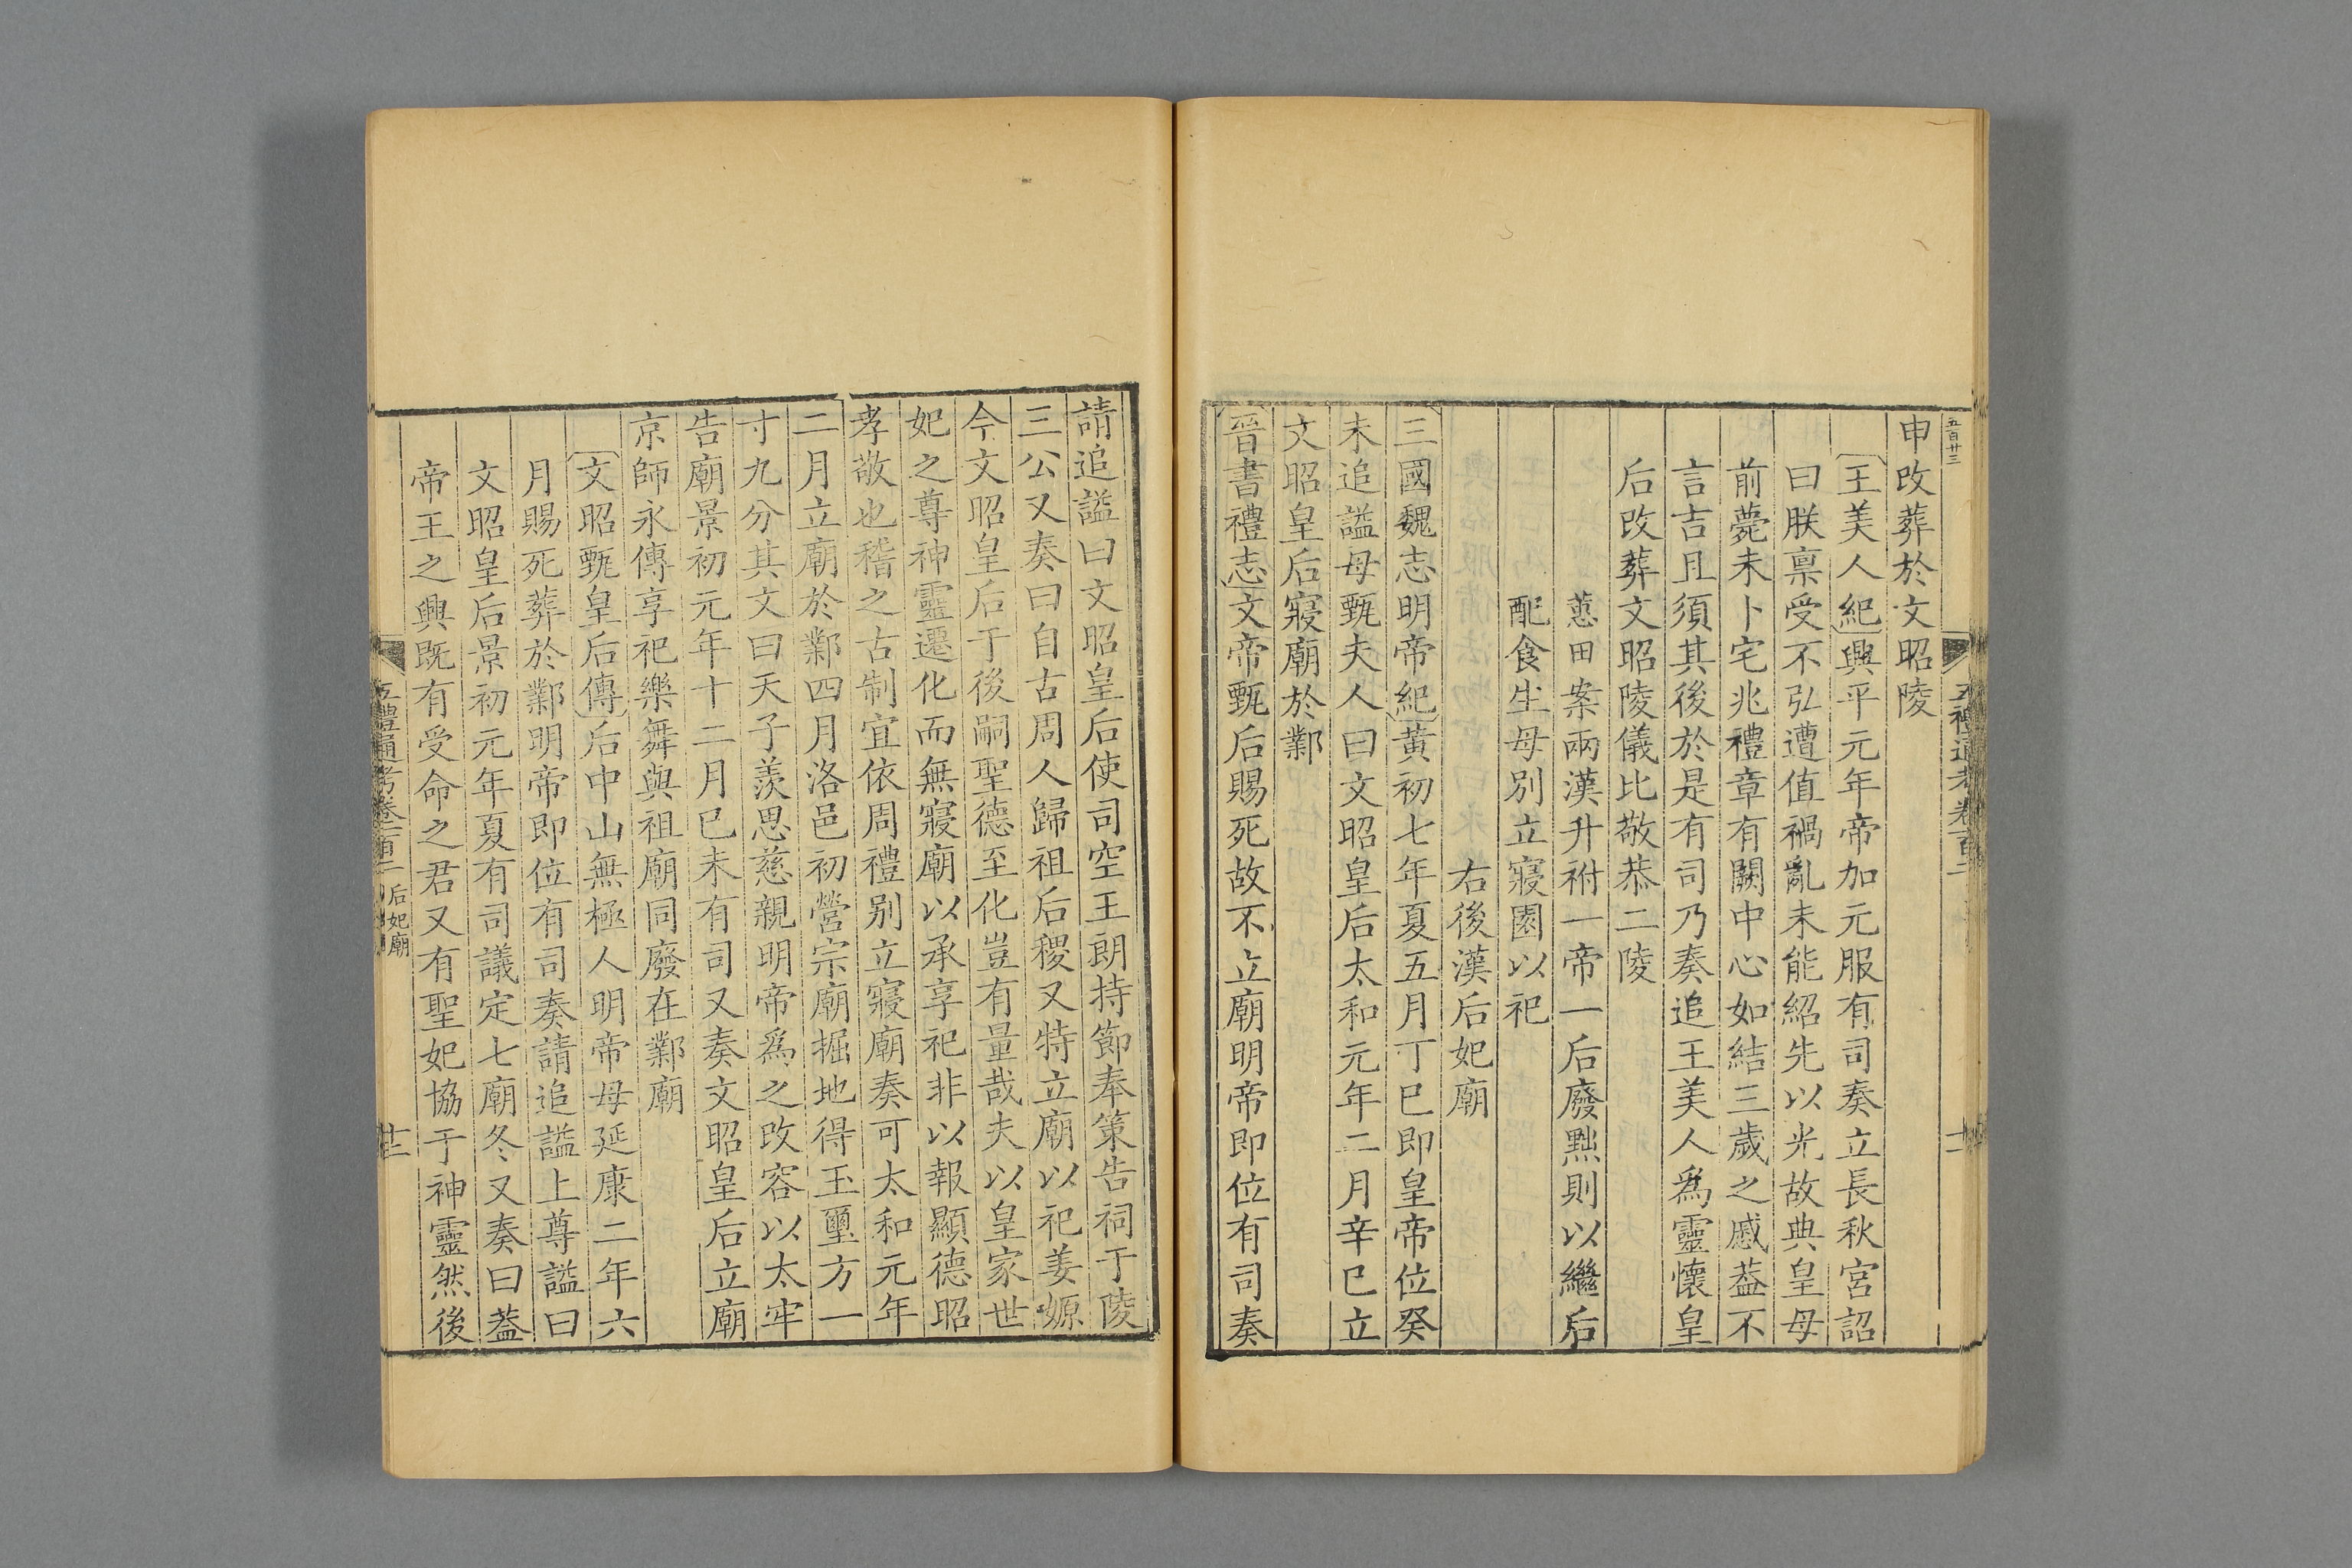 五百廿三
五禮通考卷百二
申改葬於文昭陵
王美人紀興平元年帝加元服有司奏立長秋宮詔
曰朕禀受不弘遭值禍亂未能紹先以光故典皇母
前薨未卜宅兆禮章有闕中心如結三歲之慼葢不
言吉且須其後於是有司乃奏追王美人爲靈懷皇
后改葬文昭陵儀比敬恭二陵
蕙田案兩漢升祔一帝一后廢黜則以繼后
配食生母別立寢園以祀
右後漢后妃廟
三國魏志明帝紀黃初七年夏五月丁巳即皇帝位癸
未追謚母甄夫人曰文昭皇后太和元年二月辛巳立
文昭皇后寢廟於鄴
晉書禮志文帝甄后賜死故不立廟明帝即位有司奏
請追謚曰文昭皇后使司空王朗持節奉策告祠于陵
三公又奏曰自古周人歸祖后稷又特立廟以祀姜嫄
今文昭皇后于後嗣聖德至化豈有量哉夫以皇家世
妃之尊神靈遷化而無寢廟以承享祀非以報顯德昭
孝敬也稽之古制宜依周禮別立寢廟奏可太和元年
二月立廟於鄴四月洛邑初營宗廟掘地得玉璽方一
寸九分其文曰天子羨思慈親明帝爲之改容以太牢
告廟景初元年十二月已未有司又奏文昭皇后立廟
京師永傳享祀樂舞與祖廟同廢在鄴廟
文昭甄皇后傳后中山無極人明帝母延康二年六
月賜死葬於鄴明帝即位有司奏請追謚上尊謚曰
文昭皇后景初元年夏有司議定七廟冬又奏曰葢
帝王之興既有受命之君又有聖妃協于神靈然後
五禮通考卷一百二 后妃廟